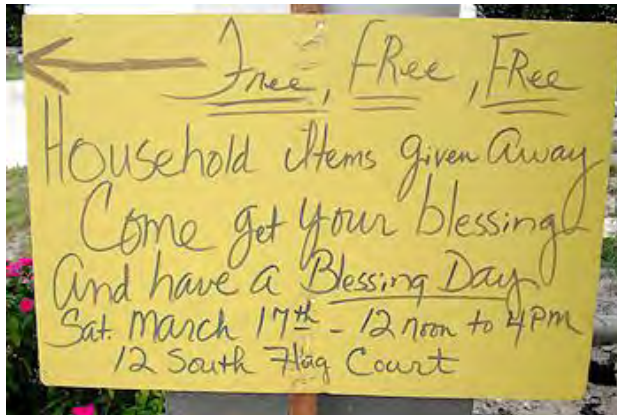 Free, FRee, FRee
Household Items given Away
Come get your blessing
And have a Blessing Day
Sat. March 17th - 12 noon to 4PM
12 South Flag Court